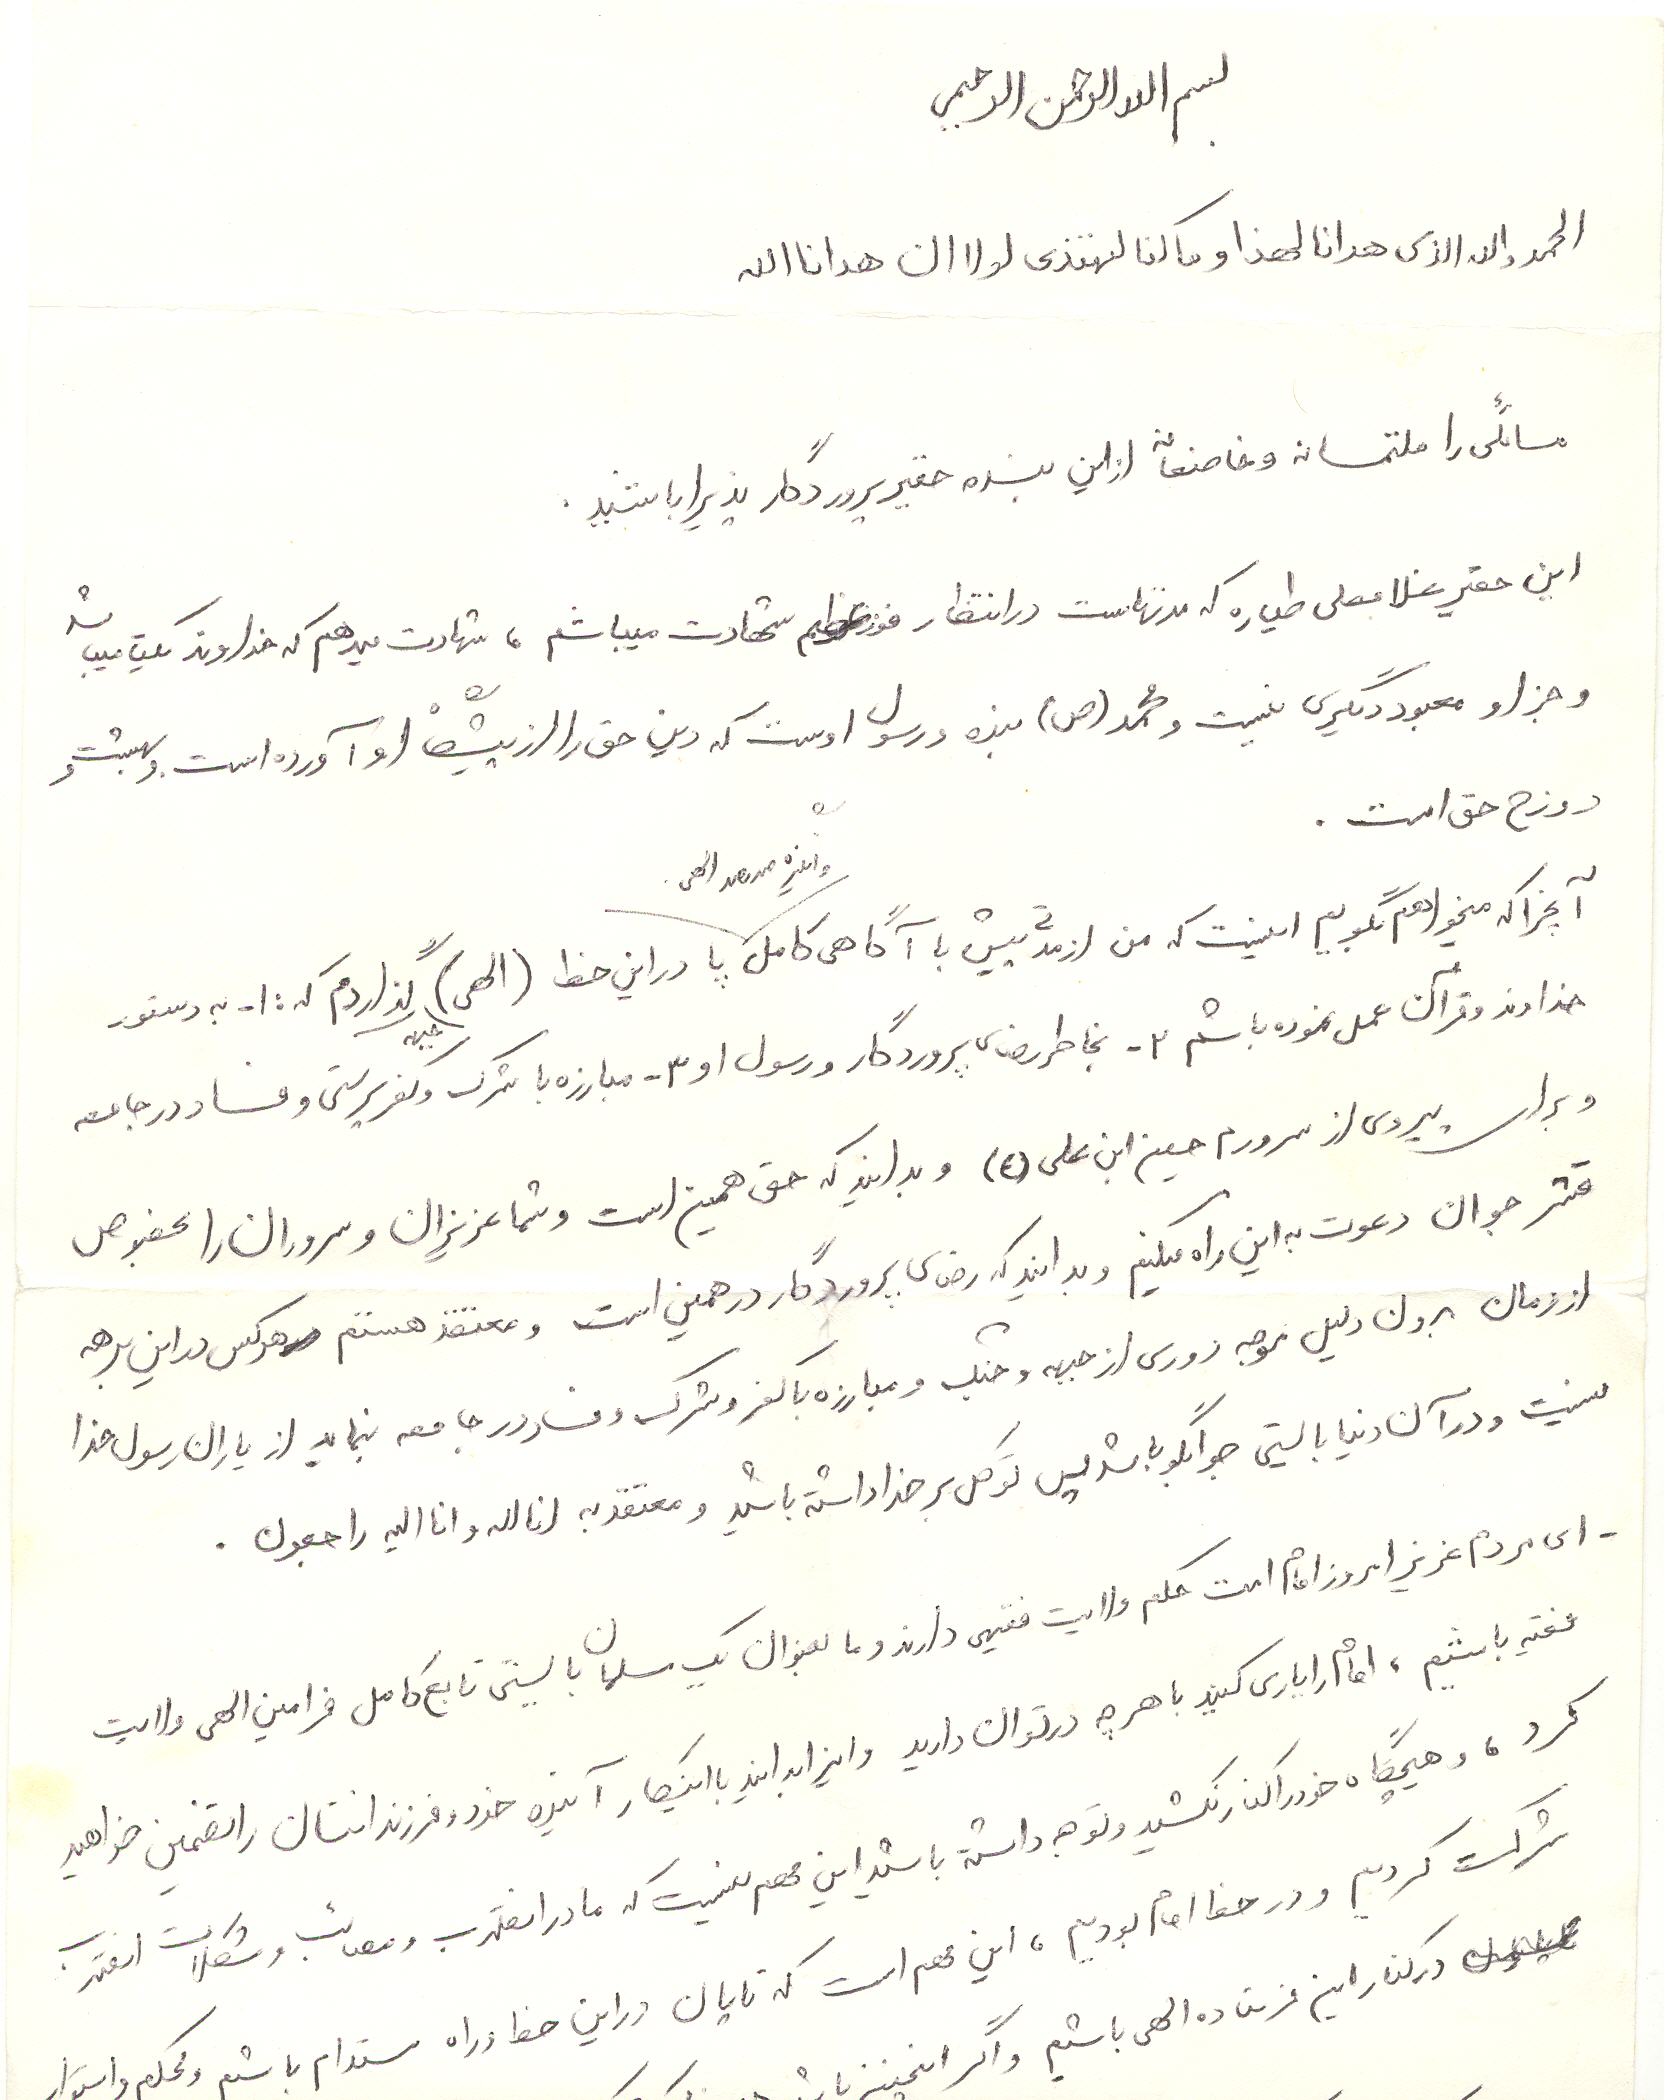 بسم الله الرحمن الرحیم
الحمد والله الذی هدانا لهذا و ما کنا لنهتدی لولا ان هدانا الله
مسائلی را ملتمسانه و خاضعانهٔ ازاین بنده حقیر پروردگار پذیرا باشید .
این حقیر غلامعلی طیاره که مدتهاست در انتظار فوز عظیم شهادت میباشم ، شهادت میدهم که خداوند یکتا میباشد
و جز او معبود دیگری نیست و محمد (ص) بنده و رسول اوست که دین حق را از پیشگاه او آورده است و بهشت و
دوزخ حق است .
و انگیزه صد در صد الهی
آنچرا که میخواهم بگویم اینست که من از مدتی پیش با آگاهی کامل پا در این خط (الهی) جبهه گذاردم که : ۱- به دستور
خداوند و قرآن عمل نموده باشم ۲- بخاطر رضای پروردگار و رسول او ۳- مبارزه با شرک و کفر پرستی و فساد در جامعه
و برای پیروی از سرورم حسین ابن علی (ع) و بدانید که حق همین است و شما عزیزان و سروران را بخصوص
قشر جوان دعوت به این راه میکنیم و بدانید که رضای پروردگار در همین است و معتقد هستم هرکس در این برهه
از زمان بدون دلیل موجه دوری از جبهه و جنگ و مبارزه با کفر و شرک و فساد در جامعه بنماید از یاران رسول خدا
نیست و در آن دنیا بایستی جوابگو باشد پس توکل بر خدا داشته باشید و معتقد به انا لله و انا الیه راجعون .
- ای مردم عزیز امروز امام امت حکم ولایت فقیهی دارند و ما بعنوان یک مسلمان بایستی تابع کامل فرامین الهی ولایت
فقیه باشیم ، امام را یاری کنید با هر چه در توان دارید و اینرا بدانید با اینکار آینده خود و فرزندانتان را تضمین خواهید
کرد ، و هیچگاه خود را کنار نکشید و توجه داشته باشید این مهم نیست که ما در انقلاب و مصائب و مشکلات انقلاب
شرکت کردیم و در خط امام بودیم ، این مهم است که تا پایان در این خط و راه مستدام باشیم و محکم و استوار
در کنار این فرستاده الهی باشیم و اگر اینچنین